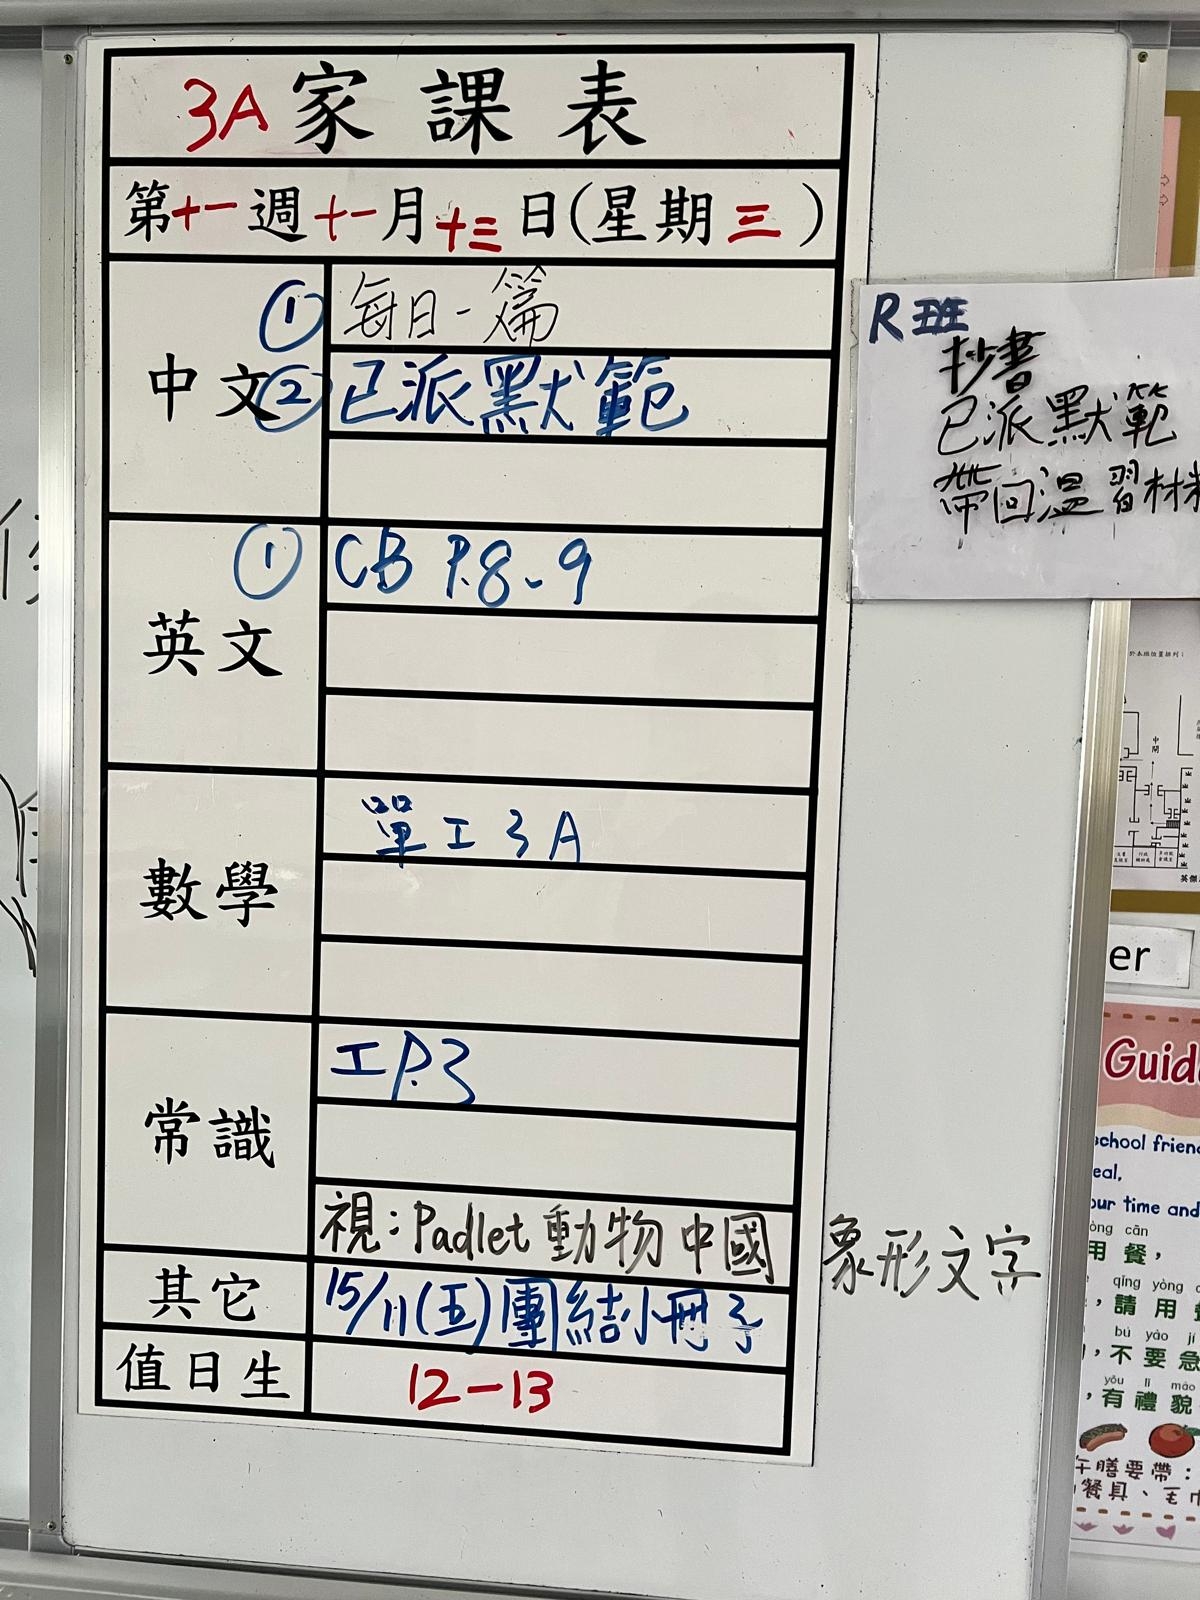 3A家課表
第十一週十一月十三日(星期三)
中文
① 每日一篇
② 已派默範
英文
① CB P.8-9
數學
單工3A
常識
工P.3
視：Padlet動物中國象形文字
其它
15/11(五)團結小冊子
值日生
12-13
R班
抄書
已派默範
帶回溫習材料
中間
英傑
er
Guid
school frien
eal,
our time and
òng cān
用餐，
qǐng yòng
，請用
bú yào jí
，不要急
yǒu lǐ mào
，有禮貌
午膳要帶：
餐具、毛巾